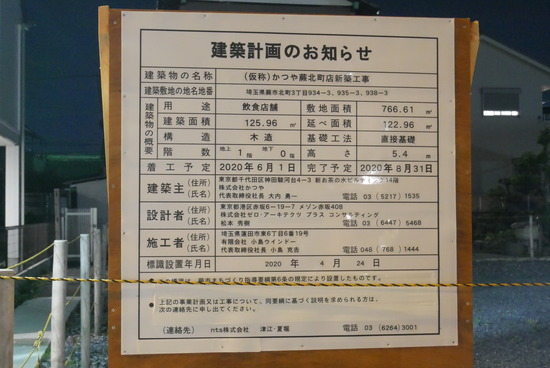 建築計画のお知らせ
建築物の名称 (仮称)かつや蕨北町店新築工事
建築敷地の地名地番 埼玉県蕨市北町3丁目934-3、935-3、938-3
建築物の概要
用途 飲食店舗 敷地面積 766.61 ㎡
建築面積 125.96 ㎡ 延べ面積 122.96 ㎡
構造 木造 基礎工法 直接基礎
階数 地上 1階 地下 0階 高さ 5.4 m
着工予定 2020年6月1日 完了予定 2020年8月31日
建築主 (住所) 東京都千代田区神田駿河台4-3 新お茶の水ビルディング14階
(氏名) 株式会社かつや
代表取締役社長 大内 勇一 電話 03 (5217) 1535
設計者 (住所) 東京都港区赤坂6-19-7 メゾン赤坂408
(氏名) 株式会社ゼロ・アーキテクツ プラス コンサルティング
松本 秀樹 電話 03 (6447) 5468
施工者 (住所) 埼玉県蓮田市東6丁目6番19号
(氏名) 有限会社 小島ウインドー
代表取締役社長 小島 克吉 電話 048 (768) 1444
標識設置年月日 2020 年 4 月 24 日
この標識は、蕨市まちづくり指導要綱第6条の規定により設置したものです。
上記の事業計画又は工事について、同要綱に基づく説明を求められる方は、
次の連絡先に申し出てください。
(連絡先) 株式会社 津江・夏堀 電話 03 (6264) 3001